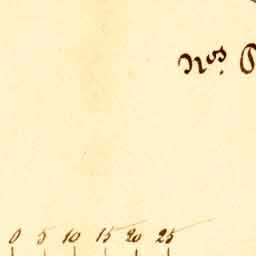 Nos.
0 5 10 15 20 25